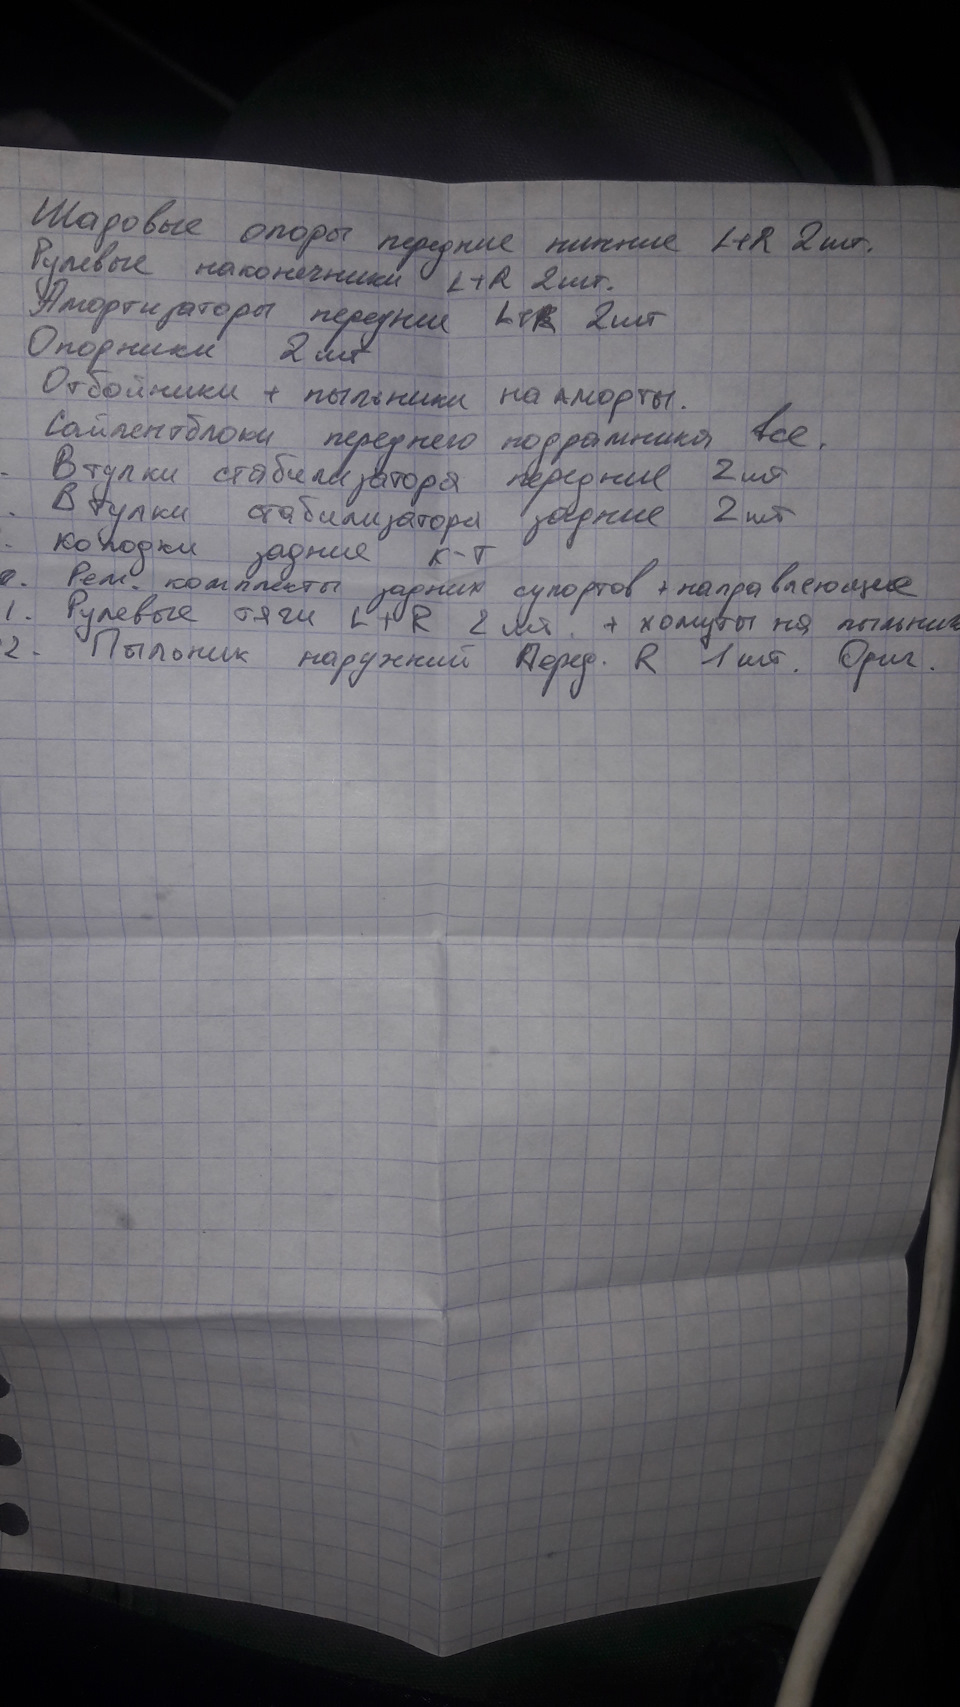 Шаровые опоры передние нижние L+R 2шт.
Рулевые наконечники L+R 2шт.
Амортизаторы передние L+R 2шт
Опорники 2шт
Отбойники + пыльники на аморты.
Сайлентблоки переднего подрамника все.
- Втулки стабилизатора передние 2шт
. Втулки стабилизатора задние 2шт
. колодки задние к-т
. Рем. комплекты задних супортов + направляющие
1. Рулевые тяги L+R 2шт. + хомуты на пыльник
2. Пыльник наружний Перед. R 1шт. Ориг.